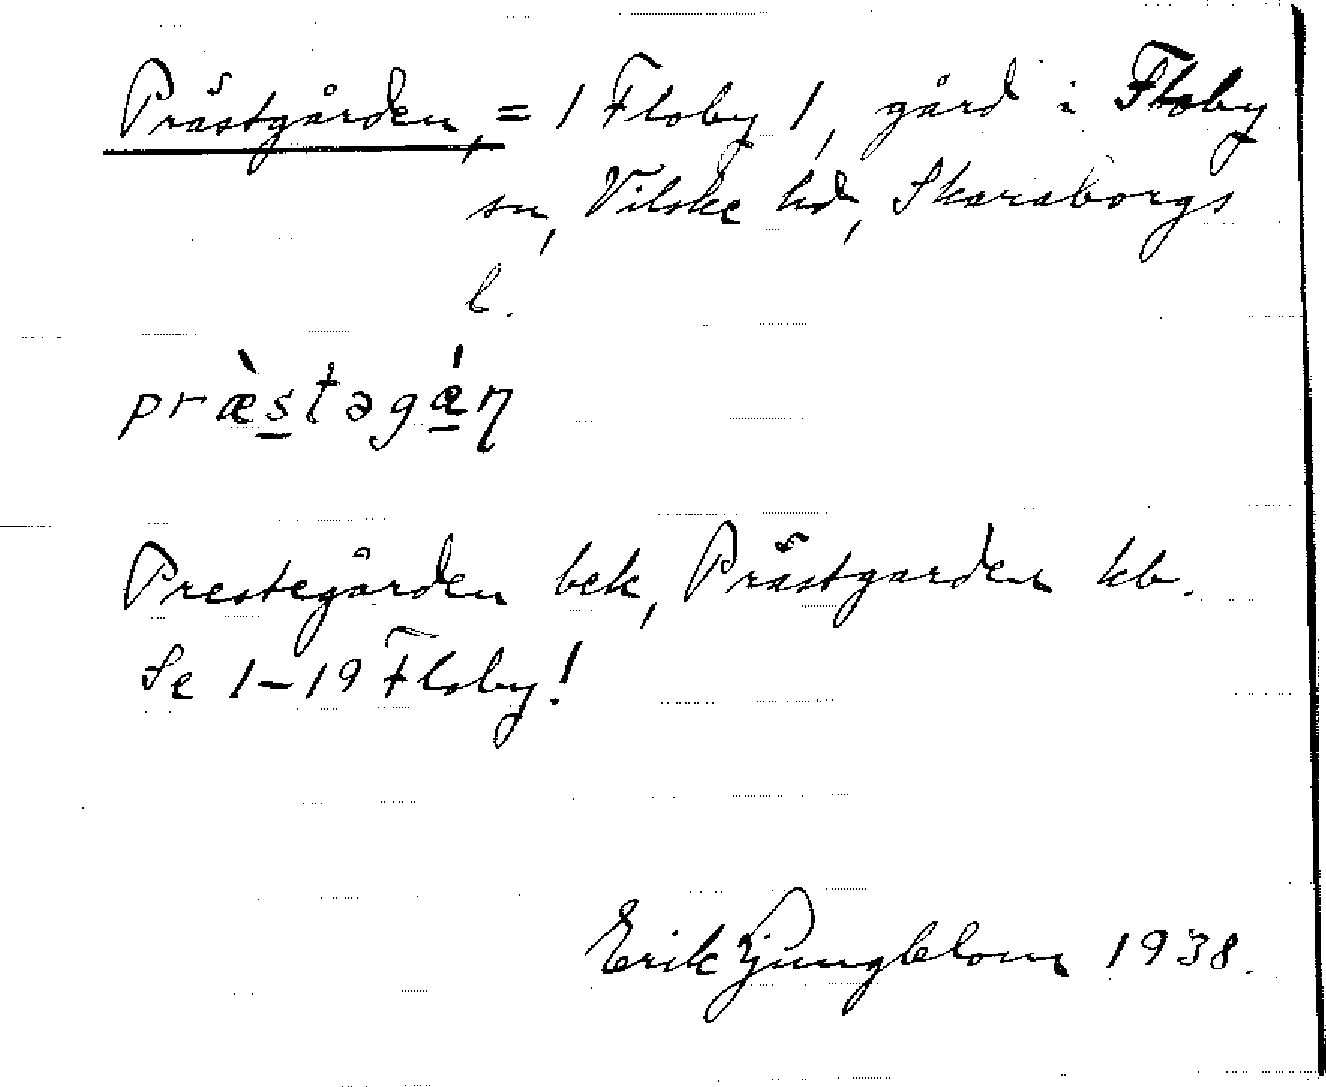 Prästgården, = 1 Floby 1, gård i Floby
sn, Vilske hd, Skaraborgs
l.
præ̀stagǽη
Prestegården bek, Prästgarden kb.
Se 1-19 Floby!
Erik Ljungblom 1938.